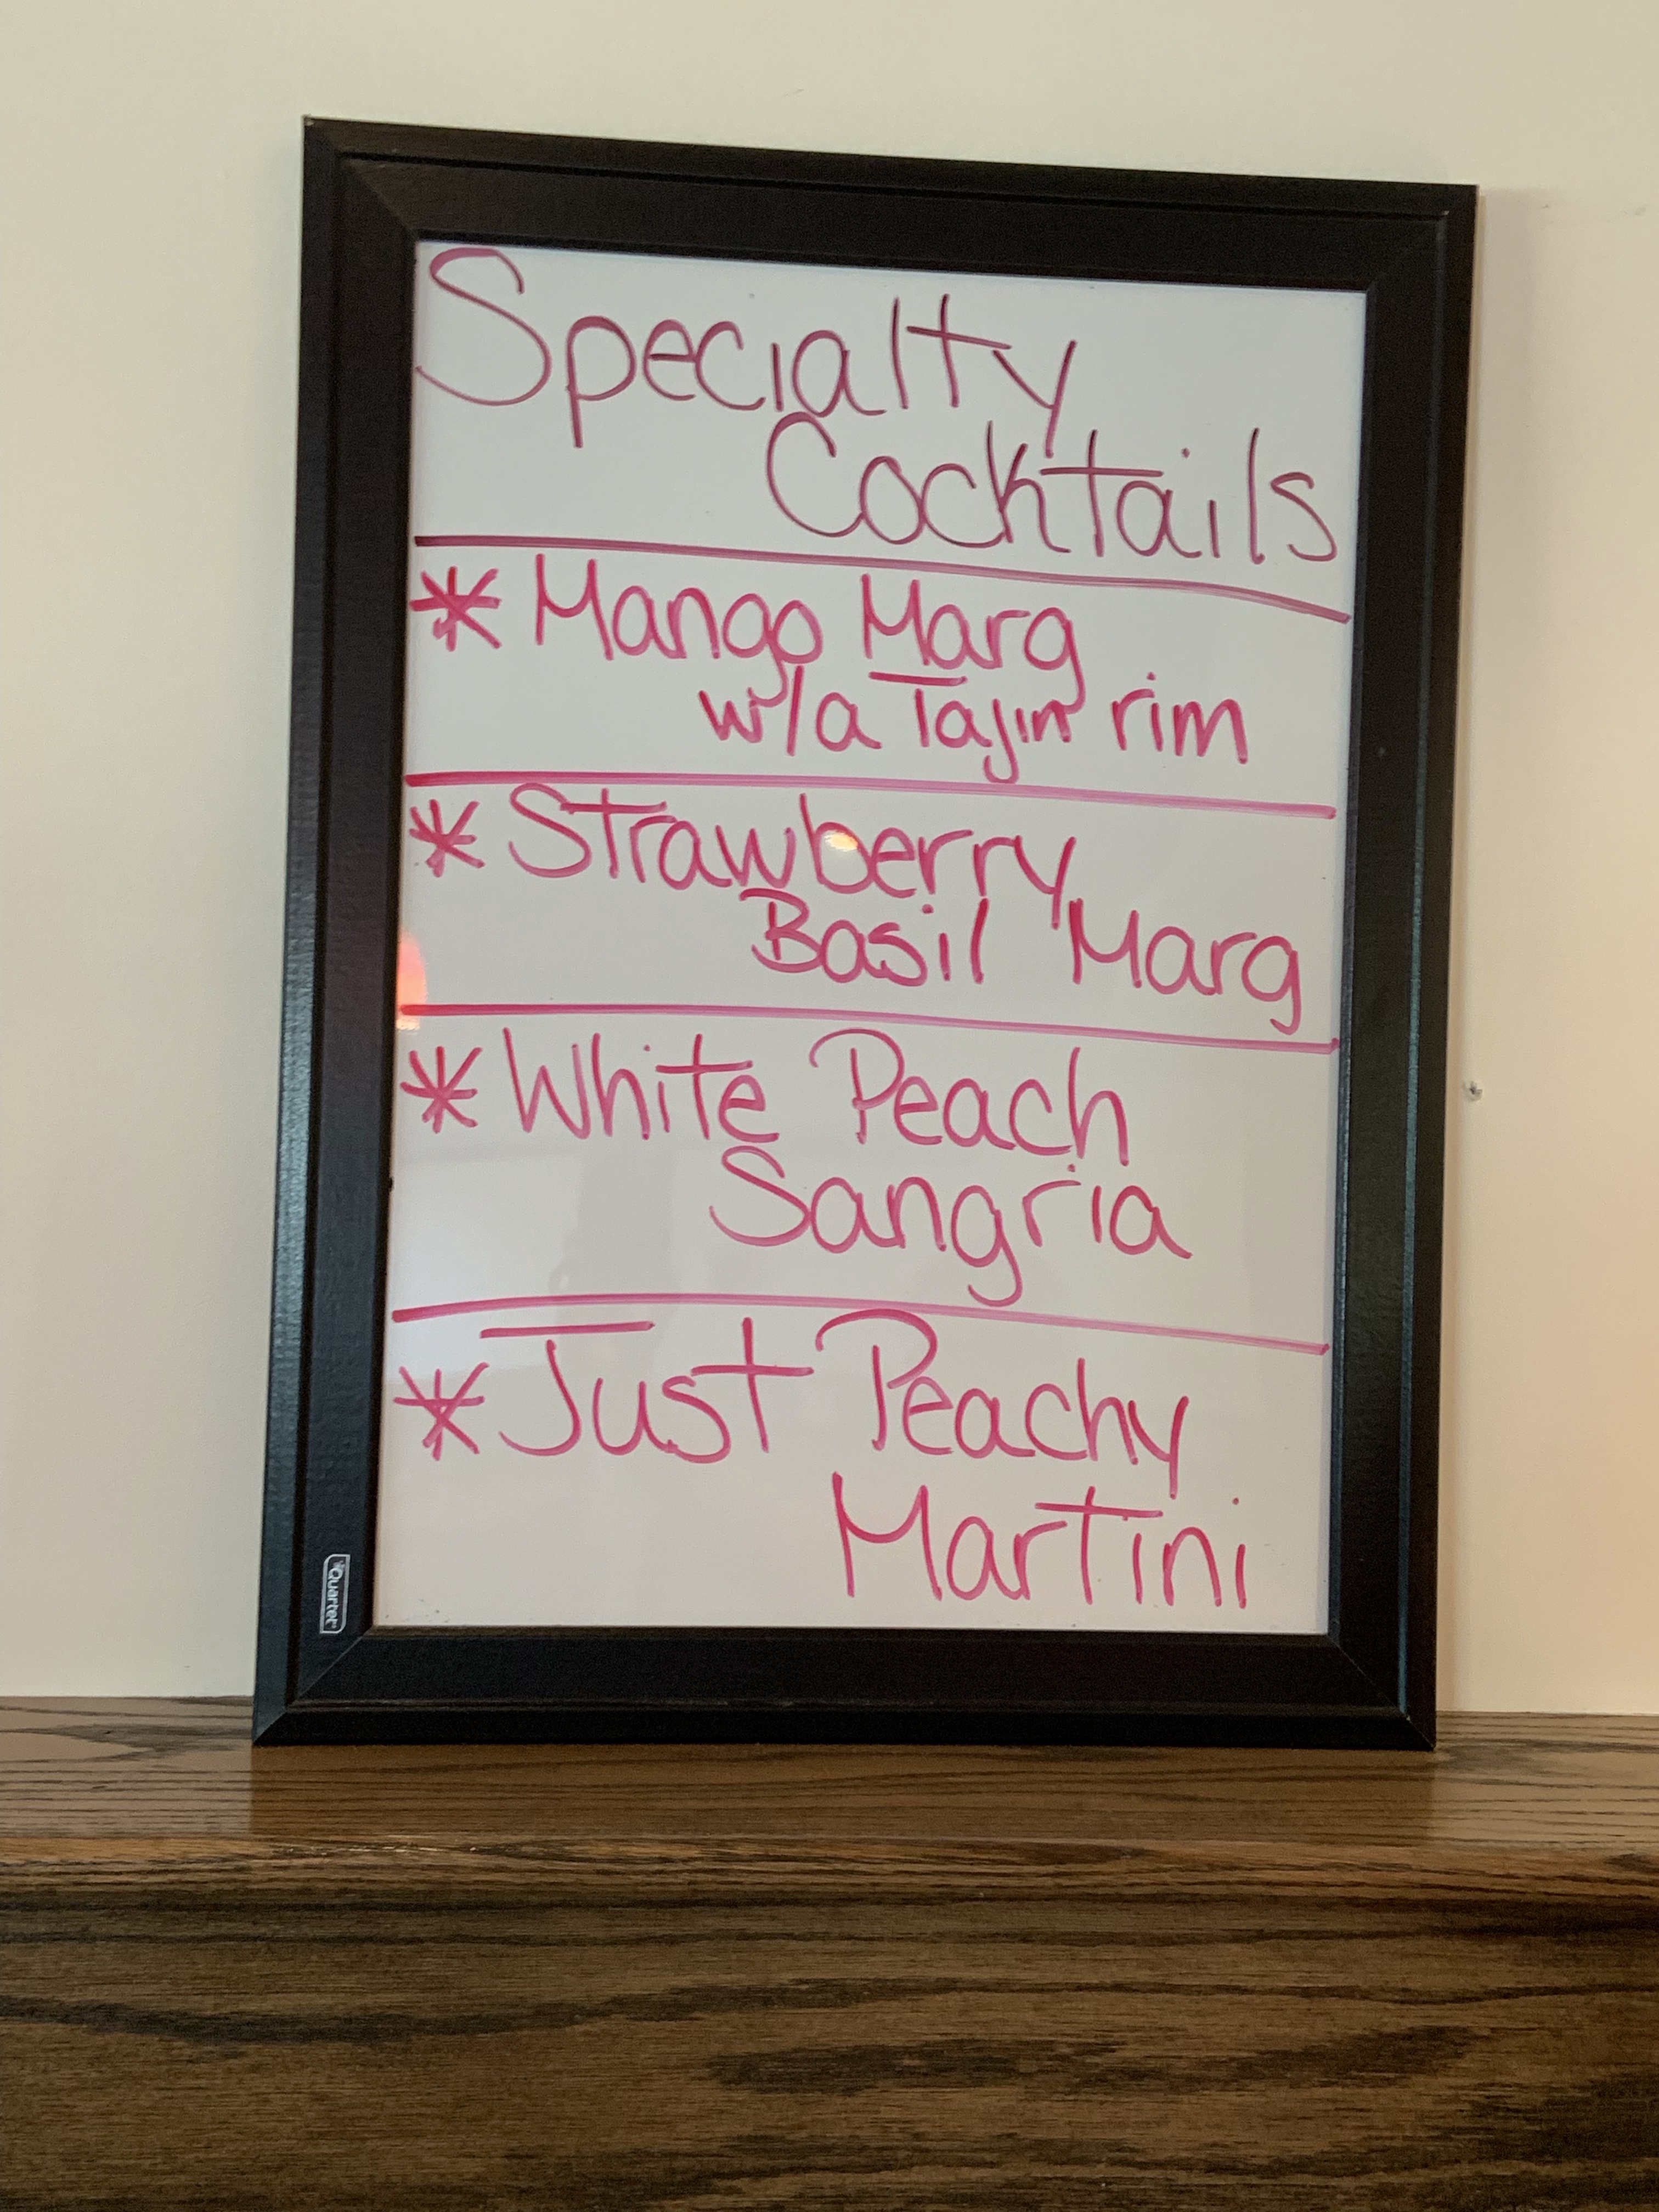 Specialty
Cocktails
* Mango Marg
w/a Tajin rim
* Strawberry
Basil Marg
* White Peach
Sangria
* Just Peachy
Martini
Quartet